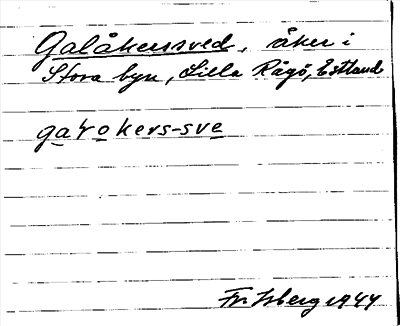 Galåkerssved, åker i
Stora byn, Lilla Rågö, Estland
gałokers-sve
Isberg 1944